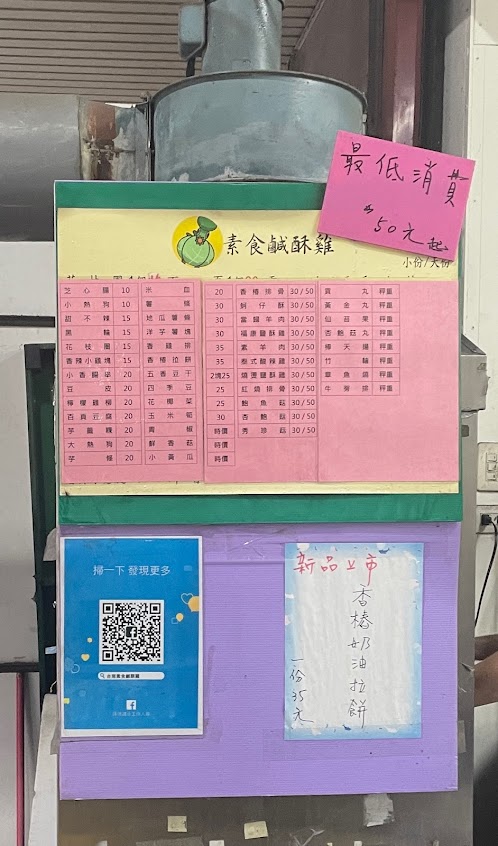 最低消費
50元起
素食鹹酥雞
小份/大份
芝心腸 10 米血 20 香椿排骨 30/50 貢丸 秤重
小熱狗 10 薯條 30 蚵仔酥 30/50 黃金丸 秤重
甜不辣 15 地瓜薯條 30 當歸羊肉 30/50 仙菇果 秤重
黑輪 15 洋芋薯塊 30 福康鹽酥雞 30/50 杏鮑菇丸 秤重
花枝圈 15 香雞排 35 素羊肉 30/50 棒天婦 秤重
香辣小雞塊 15 香椿拉餅 35 泰式酸辣雞 30/50 竹輪 秤重
小香腸 20 五香豆干 2塊25 燒燙鹽酥雞 30/50 章魚燒 秤重
豆皮 20 四季豆 25 紅燒排骨 30/50 牛蒡排 秤重
檸檬雞柳 20 花椰菜 25 鮑魚菇 30/50
百頁豆腐 20 玉米筍 30 杏鮑菇 30/50
芋籤粿 20 青椒 時價 秀珍菇 30/50
大熱狗 20 鮮香菇 時價
芋條 20 小黃瓜 時價
掃一下 發現更多
新品上市
香椿奶油拉餅
一份35元